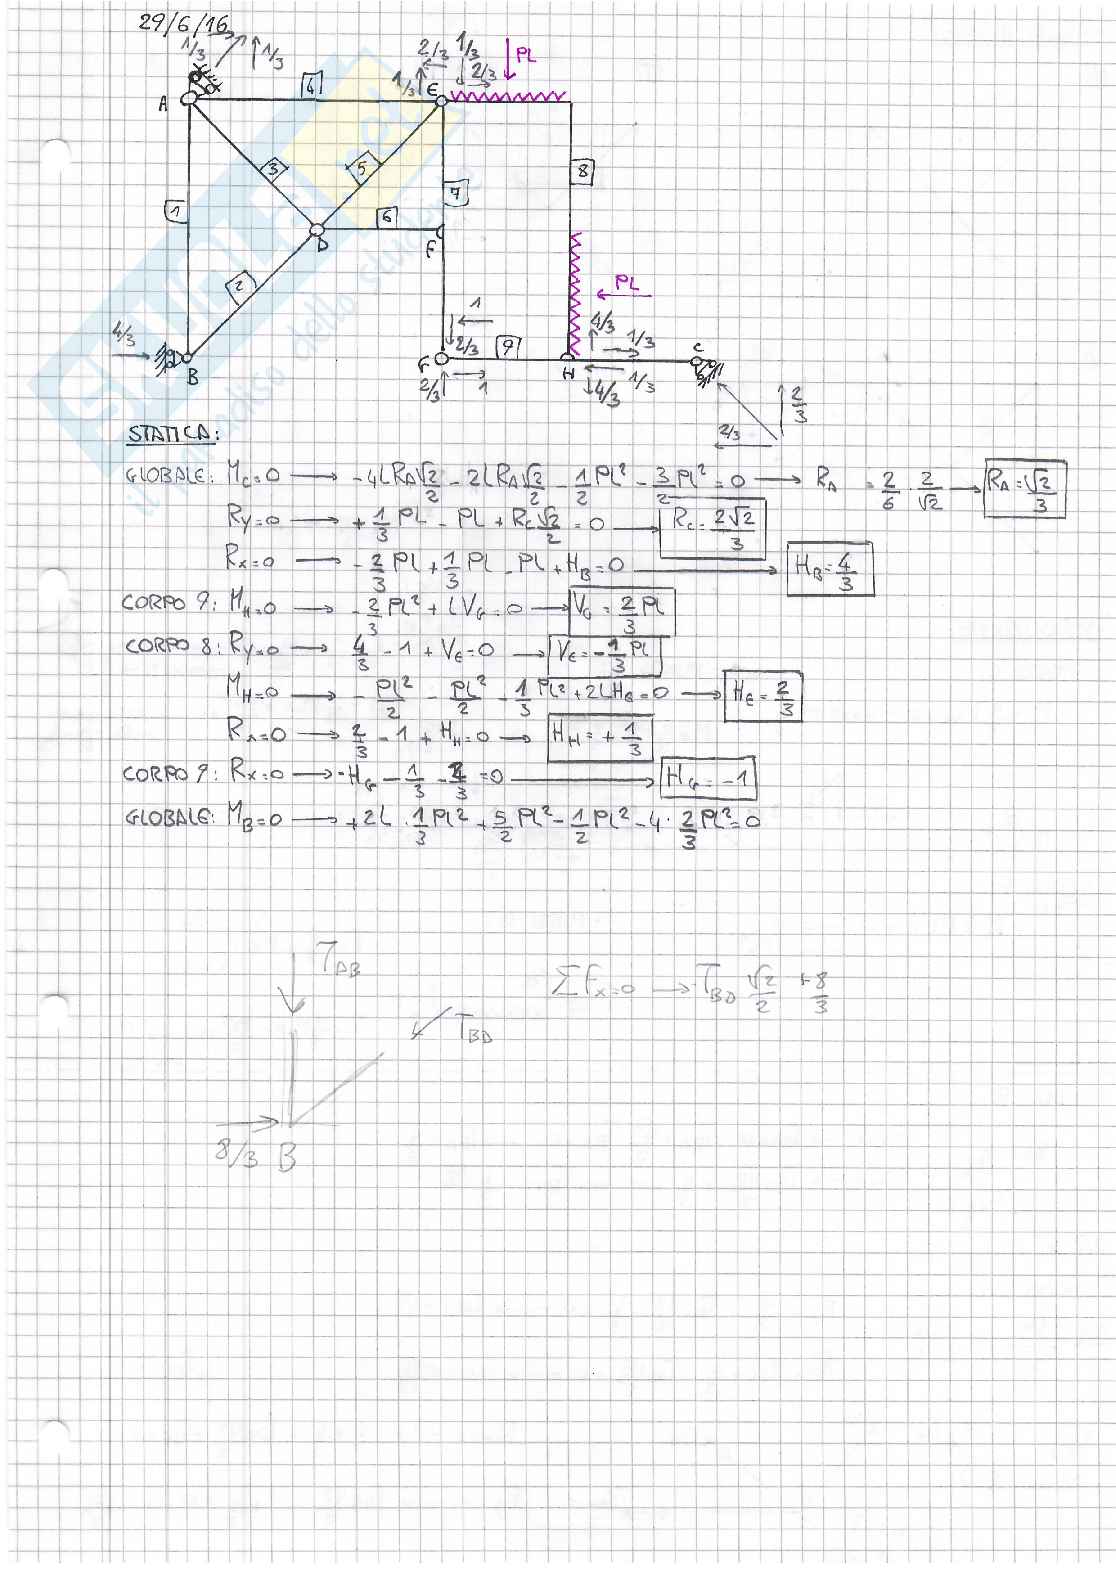 29/6/16
1/3 1/3
2/3 1/3 PL
1/3 2/3
A 4 E
3 5 7 8
1 6
D F
2
PL
1
4/3 1/3
4/3 2/3 9 C
B G H
2/3 1 4/3 1/3
2/3
2/3
STATICA:
GLOBALE: Mc=0 → -4LRA√2/2 - 2LRA√2/2 - 1/2 PL² - 3/2 PL² = 0 → RA = 2/6 · 2/√2 → RA = √2/3
Ry=0 → +1/3 PL - PL + Rc√2/2 = 0 → Rc = 2√2/3
Rx=0 → -2/3 PL + 1/3 PL - PL + HB = 0 → HB = 4/3
CORPO 9: MH=0 → -2/3 PL² + LVG = 0 → VG = 2/3 PL
CORPO 8: Ry=0 → 4/3 - 1 + VE = 0 → VE = -1/3 PL
MH=0 → -PL²/2 - PL²/2 - 1/3 PL² + 2LHE = 0 → HE = 2/3
Rx=0 → 2/3 - 1 + HH = 0 → HH = +1/3
CORPO 9: Rx=0 → -HG - 1/3 - 2/3 = 0 → HG = -1
GLOBALE: MB=0 → +2L · 1/3 PL² + 5/2 PL² - 1/2 PL² - 4 · 2/3 PL² = 0
TAB
ΣFx=0 → TBD √2/2 + 8/3
TBD
8/3 B